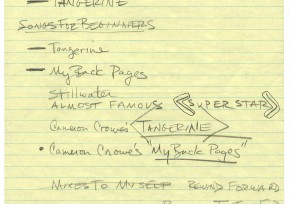 — TANGERINE
SONGS FOR BEGINNERS
— Tangerine
— My Back Pages
Stillwater
ALMOST FAMOUS SUPER STAR
Cameron Crowe's TANGERINE
• Cameron Crowe's "My Back Pages"
NOTES TO MYSELF REWIND FORWARD